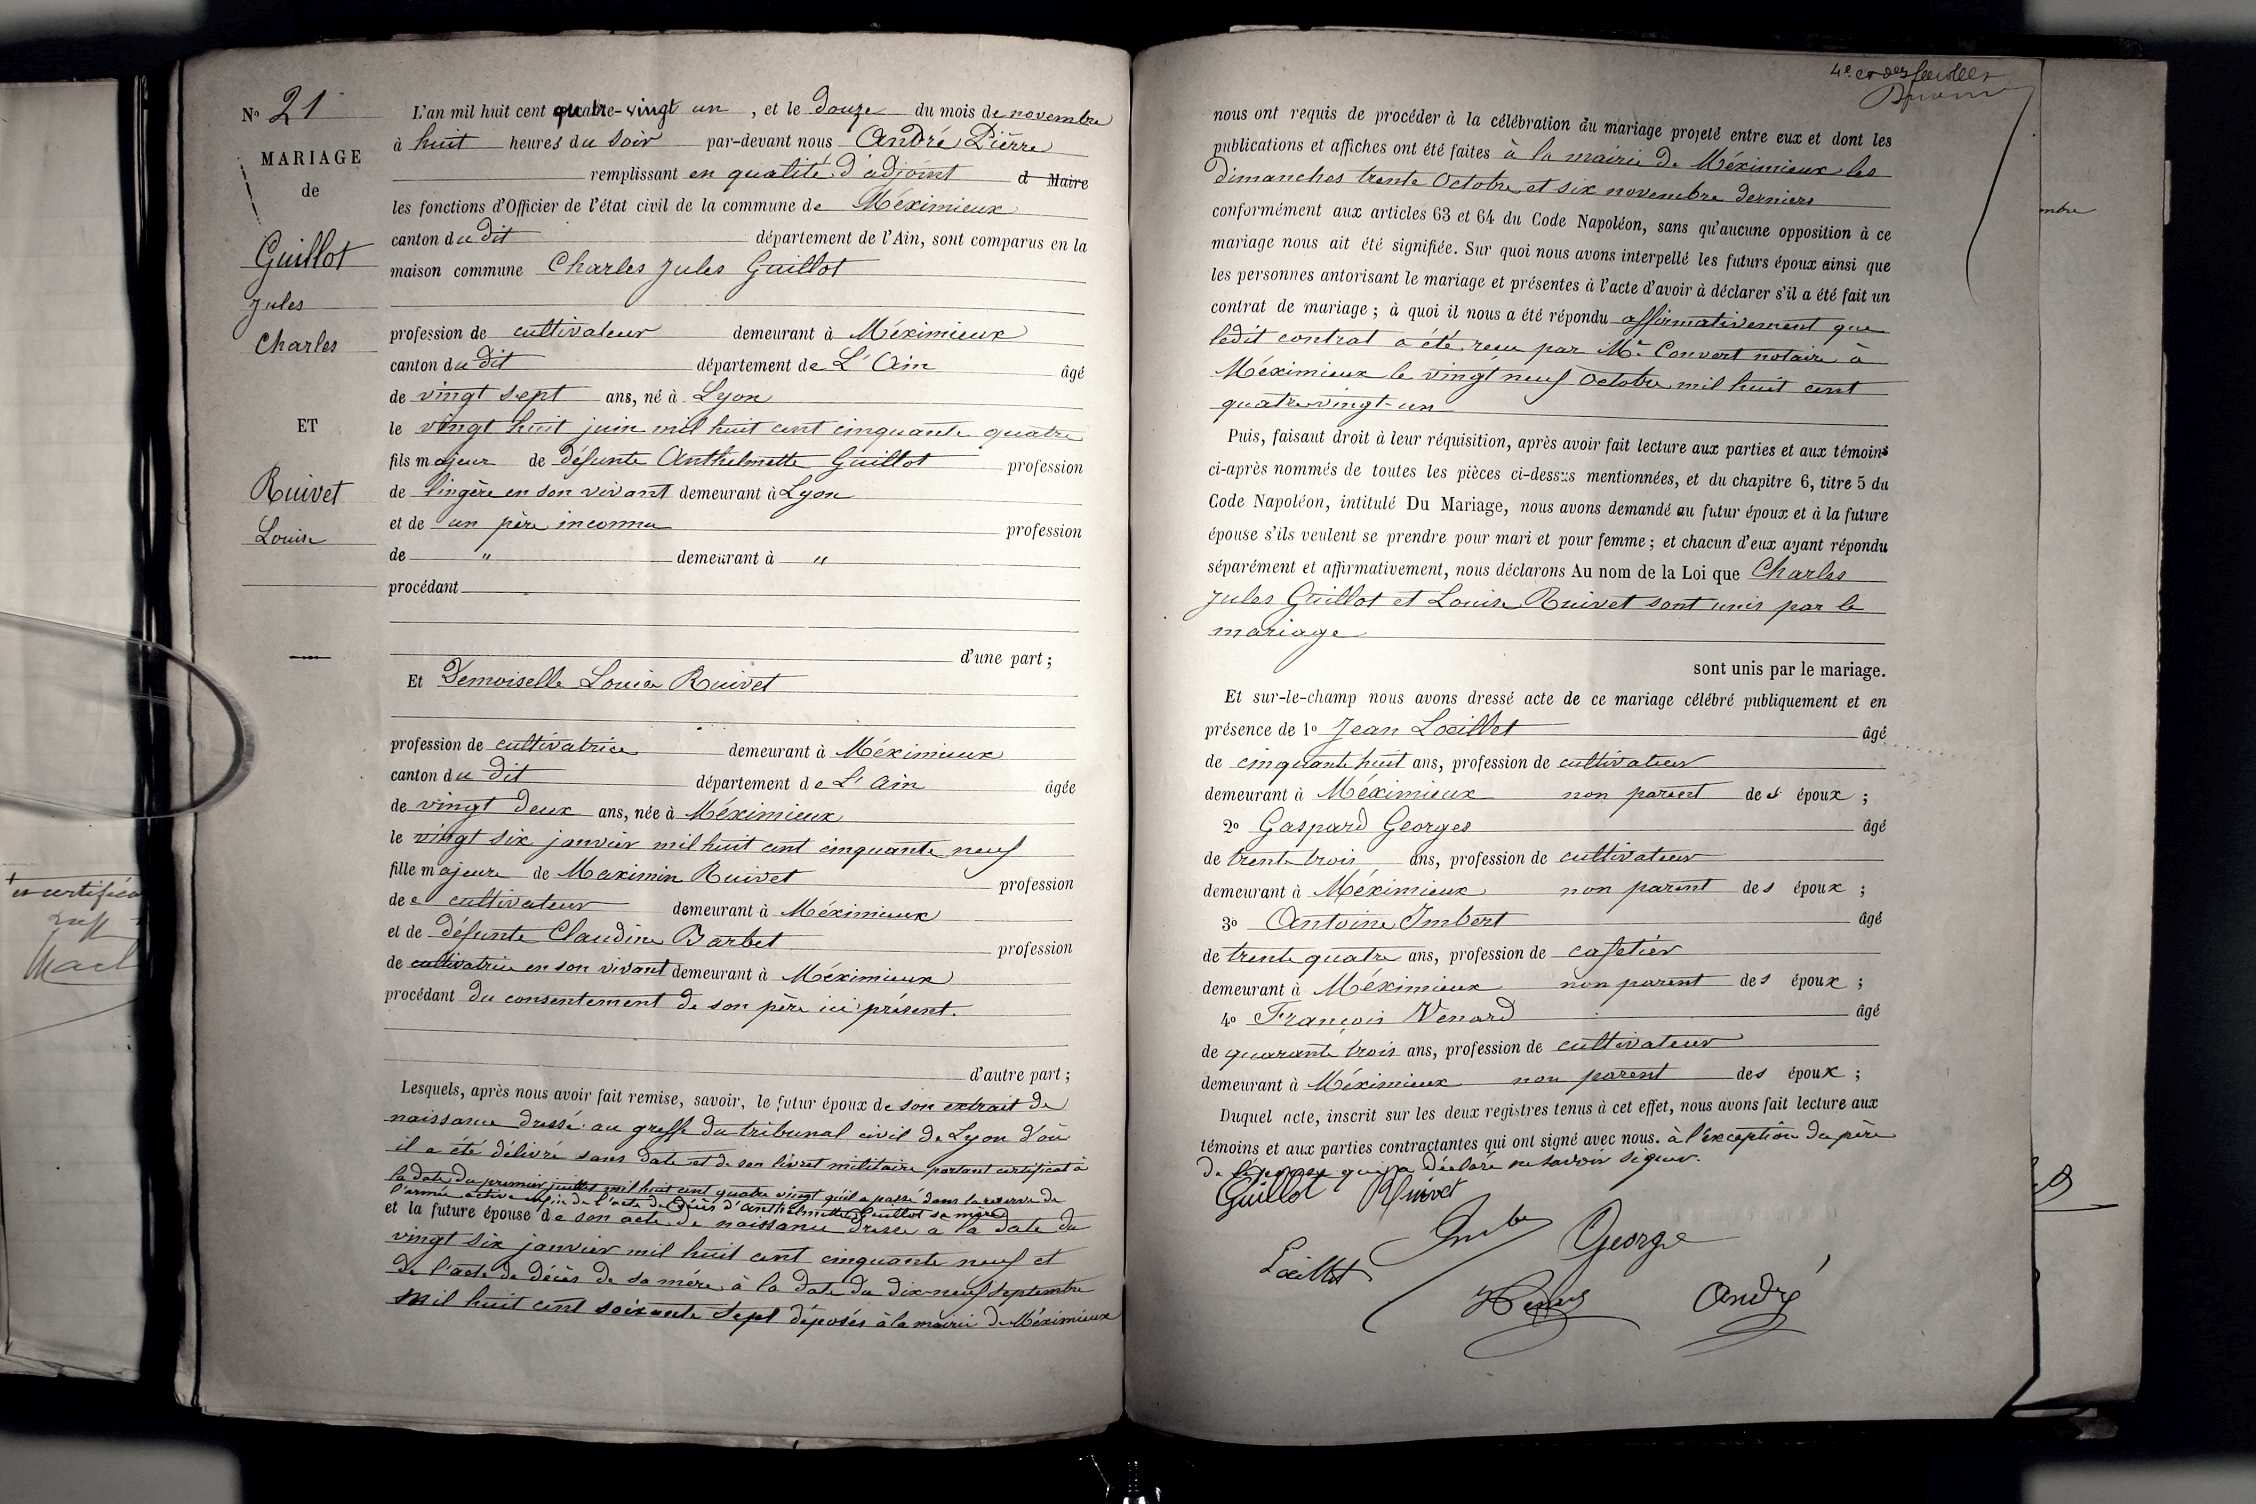 No 21
MARIAGE
de
Guillot
Jules
Charles
ET
Ruivet
Louise
L'an mil huit cent quatre-vingt un, et le douze du mois de novembre
à huit heures du soir par-devant nous André Pierre
remplissant en qualité d'adjoint d Maire
les fonctions d'Officier de l'état civil de la commune de Méximieux
canton du dit département de l'Ain, sont comparus en la
maison commune Charles Jules Guillot
profession de cultivateur demeurant à Méximieux
canton du dit département de L'Ain âgé
de vingt sept ans, né à Lyon
le vingt huit juin mil huit cent cinquante quatre
fils majeur de défunte Anthelmette Guillot profession
de lingère en son vivant demeurant à Lyon
et de un père inconnu profession
de " demeurant à "
procédant
d'une part ;
Et Demoiselle Louise Ruivet
profession de cultivatrice demeurant à Méximieux
canton du dit département de L'Ain âgée
de vingt deux ans, née à Méximieux
le vingt six janvier mil huit cent cinquante neuf
fille majeure de Maximin Ruivet profession
de cultivateur demeurant à Méximieux
et de défunte Claudine Barbet profession
de cultivatrice en son vivant demeurant à Méximieux
procédant du consentement de son père ici présent.
d'autre part ;
Lesquels, après nous avoir fait remise, savoir, le futur époux de son extrait de
naissance dressé au greffe du tribunal civil de Lyon d'où
il a été délivré sans date et de son livret militaire portant certificat à
la date du premier juillet mil huit cent quatre vingt qu'il a passé dans la réserve de
l'armée active enfin de l'acte de décès d'Anthelmette Guillot sa mère
et la future épouse de son acte de naissance dressé à la date du
vingt six janvier mil huit cent cinquante neuf et
de l'acte de décès de sa mère à la date du dix-neuf septembre
mil huit cent soixante sept déposés à la mairie de Méximieux
nous ont requis de procéder à la célébration du mariage projeté entre eux et dont les
publications et affiches ont été faites à la mairie de Méximieux les
dimanches trente Octobre et six novembre derniers
conformément aux articles 63 et 64 du Code Napoléon, sans qu'aucune opposition à ce
mariage nous ait été signifiée. Sur quoi nous avons interpellé les futurs époux ainsi que
les personnes antorisant le mariage et présentes à l'acte d'avoir à déclarer s'il a été fait un
contrat de mariage ; à quoi il nous a été répondu affirmativement que
ledit contrat a été reçu par Me Convert notaire à
Méximieux le vingt neuf Octobre mil huit cent
quatre vingt-un
Puis, faisaut droit à leur réquisition, après avoir fait lecture aux parties et aux témoins
ci-après nommés de toutes les pièces ci-dessus mentionnées, et du chapitre 6, titre 5 du
Code Napoléon, intitulé Du Mariage, nous avons demandé au futur époux et à la future
épouse s'ils veulent se prendre pour mari et pour femme ; et chacun d'eux ayant répondu
séparément et affirmativement, nous déclarons Au nom de la Loi que Charles
Jules Guillot et Louise Ruivet sont unis par le
mariage
sont unis par le mariage.
Et sur-le-champ nous avons dressé acte de ce mariage célébré publiquement et en
présence de 1o Jean Loeillet âgé
de cinquante huit ans, profession de cultivateur
demeurant à Méximieux non parent des époux ;
2o Gaspard Georges âgé
de trente trois ans, profession de cultivateur
demeurant à Méximieux non parent des époux ;
3o Antoine Imbert âgé
de trente quatre ans, profession de cafetier
demeurant à Méximieux non parent des époux ;
4o François Vénard âgé
de quarante trois ans, profession de cultivateur
demeurant à Méximieux non parent des époux ;
Duquel acte, inscrit sur les deux registres tenus à cet effet, nous avons fait lecture aux
témoins et aux parties contractantes qui ont signé avec nous. à l'exception du père
de l'épouse qui a déclaré ne savoir signer.
Guillot Ruivet
George
Loeillet
André
mbre